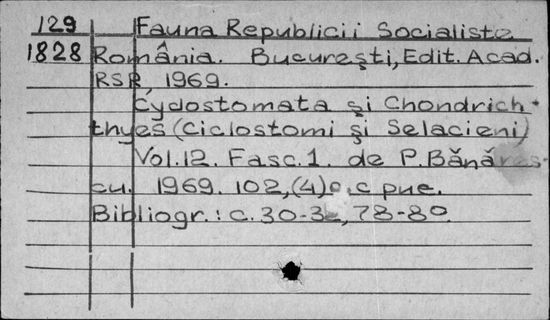 129 Fauna Republicii Socialiste
1828 România. Bucureşti, Edit. Acad.
RSR, 1969.
Cyclostomata şi Chondrich-
thyes (Ciclostomi şi Selacieni)
Vol.12. Fasc.1. de P. Bănăres-
cu. 1969. 102,(4) с. с рис.
Bibliogr.: с. 30-32, 78-80.